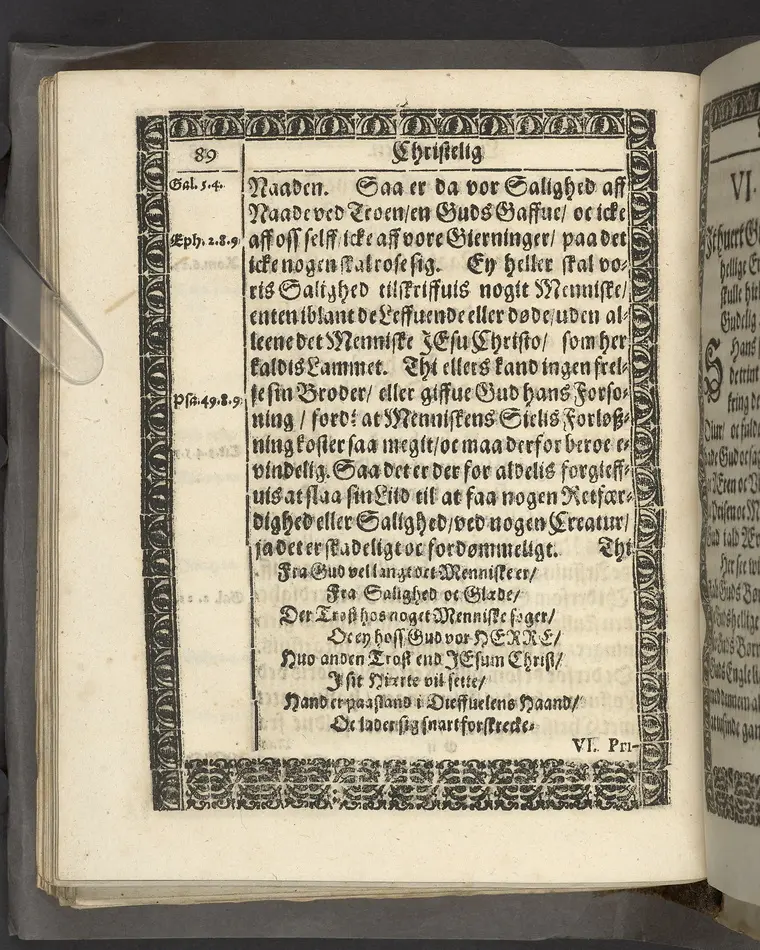 89
Christelig
Gal. 5.4.
Naaden. Saa er da vor Salighed aff
Naade ved Troen/en Guds Gaffue/ oc icke
Æph. 2.8.9.
aff oss selff/icke aff vore Gierninger/ paa det
icke nogen skal rose sig. Ey heller skal vo-
ris Salighed tilskriffuis nogit Menniske/
enten iblant de Leffuende eller døde/uden al-
leene det Menniske JEsu Christo/ som her
kaldis Lammet. Thi ellers kand ingen frel-
Psa. 49.8.9.
se sin Broder/ eller giffue Gud hans Forso-
ning / fordi at Menniskens Sielis Forløß-
ning koster saa megit/oc maa derfor beroe e-
vindelig. Saa det er der for aldelis forgieff-
uis at slaa sin Liid til at faa nogen Retfær-
dighed eller Salighed/ved nogen Creatur/
ja det er skadeligt oc fordømmeligt. Thi
Fra Gud vel langt det Menniske er/
Fra Salighed oc Glæde/
Der Trøst hos noget Menniske søger/
Oc ey hoss Gud vor HERRE/
Huo anden Trøst end JEsum Christ/
J sit Hierte vil sette/
Hand er paa stand i Dieffuelens Haand/
Oc lader sig snart forskrecke.
VI. Pri-
VI.